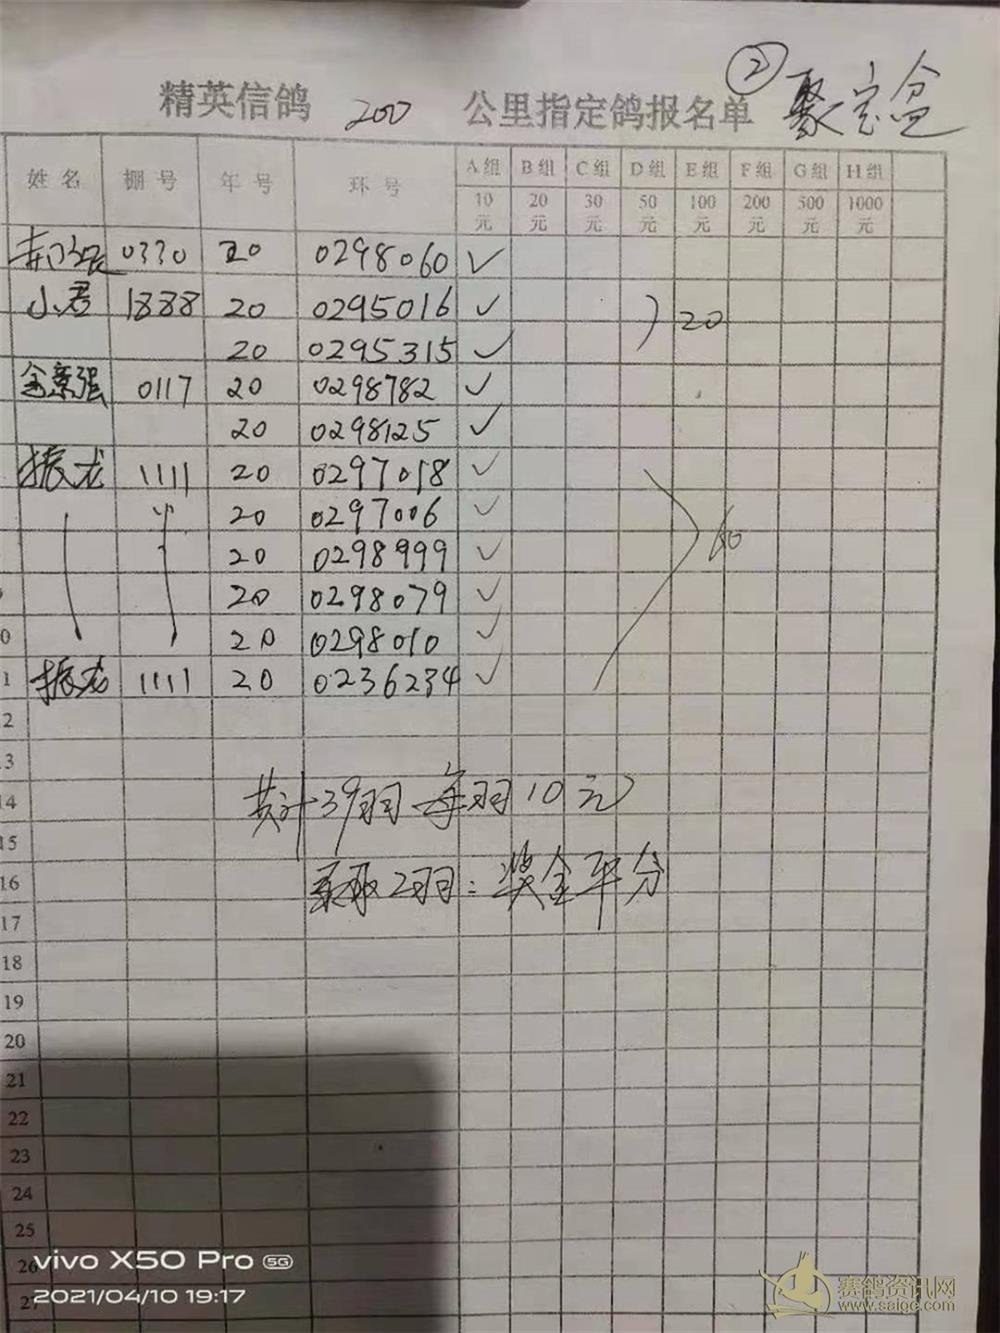 ② 聚宝盆
精英信鸽 200 公里指定鸽报名单
姓名 棚号 年号 环号 A组 B组 C组 D组 E组 F组 G组 H组
10元 20元 30元 50元 100元 200元 500元 1000元
0330 20 0298060 ✓
小君 1888 20 0295016 ✓ 20
20 0295315 ✓
金景强 0117 20 0298782 ✓
20 0298125 ✓
振龙 1111 20 0297018 ✓
20 0297006 ✓ 60
20 0298999 ✓
20 0298079 ✓
0 20 0298010 ✓
1 振龙 1111 20 0236234 ✓
2
3
14 共计39羽 每羽10元
15
16 录取2羽: 奖金平分
17
18
19
20
21
22
23
24
25
26
27
vivo X50 Pro 5G
2021/04/10 19:17
赛鸽资讯网
www.saige.com